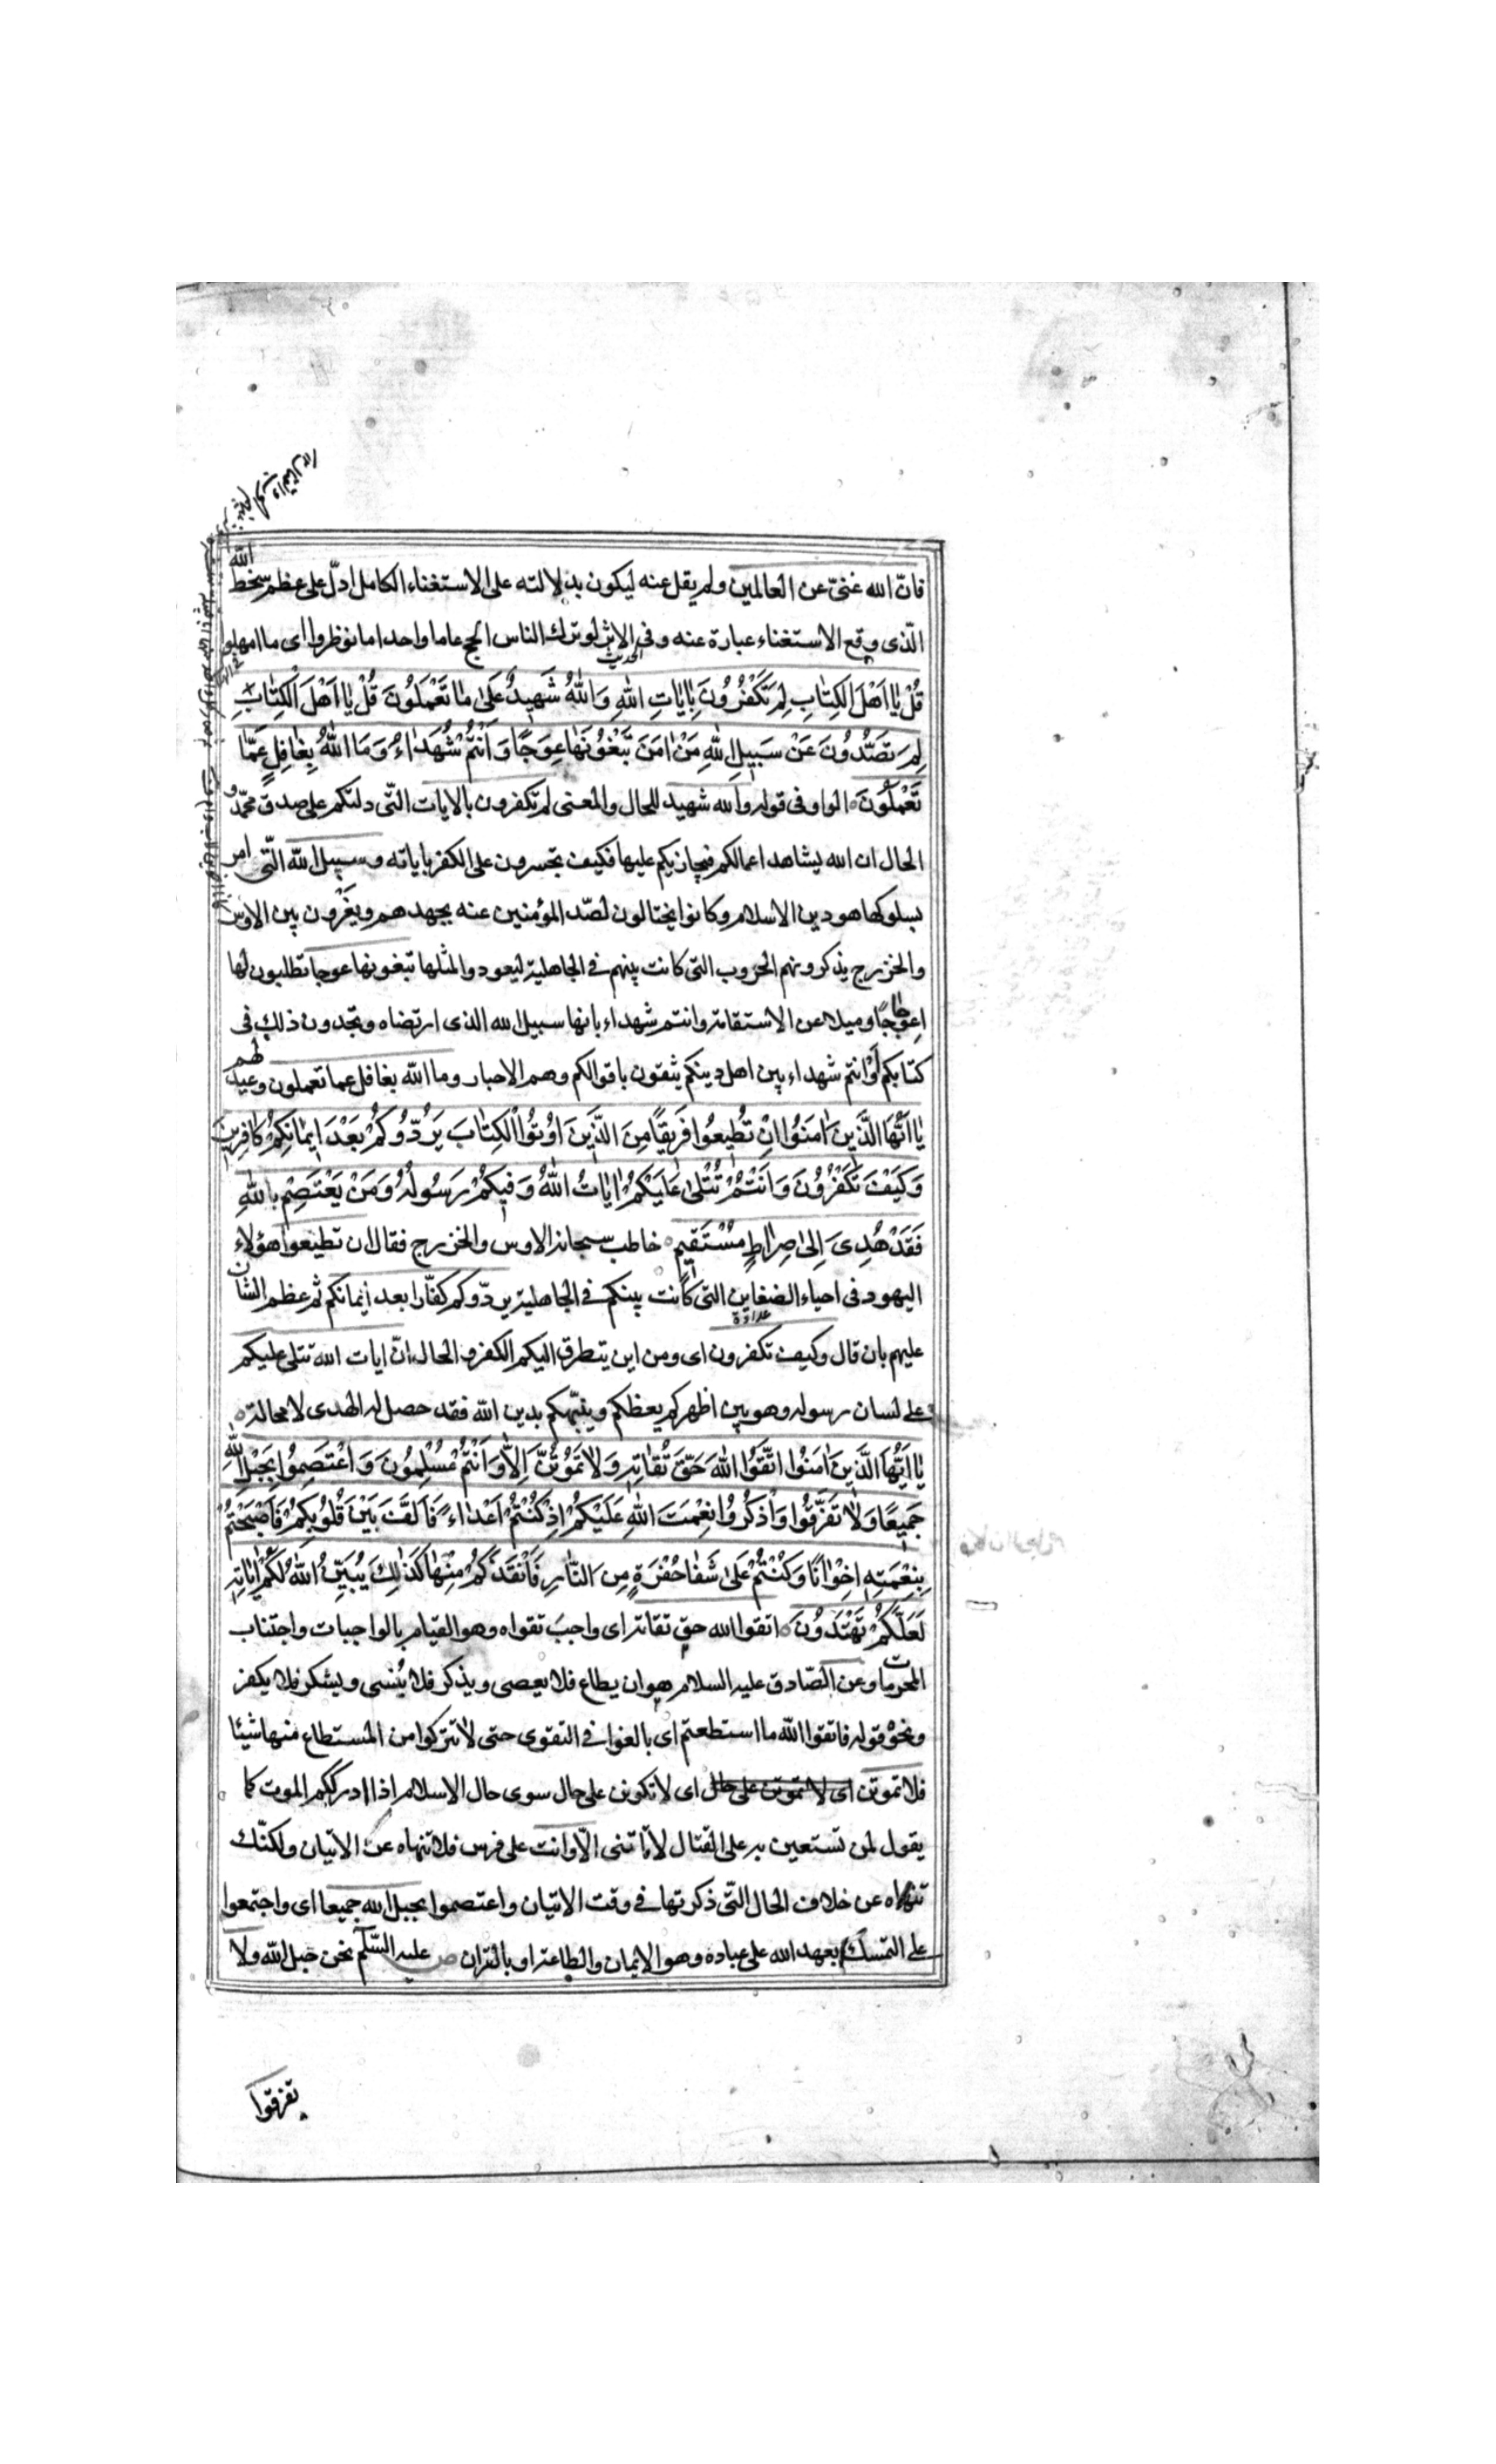 فانّ الله غنىّ عن العالمين ولم يقل عنه ليكون بدلالته على الاستغناء الكامل ادلّ على عظم سخط الله
الّذى وقع الاستغناء عبارة عنه وفى الاثر الحديث لو ترك الناس الحج عاما واحدا ما نوظروا اى ما امهلوا
قُلْ يٰا اَهْلَ الكِتٰابِ لِمَ تَكْفُرُونَ بِاٰيٰاتِ اللهِ وَاللهُ شَهِيدٌ عَلىٰ مٰا تَعْمَلُونَ قُلْ يٰا اَهْلَ الْكِتٰابِ
لِمَ تَصُدُّونَ عَنْ سَبِيلِ اللهِ مَنْ اٰمَنَ تَبْغُونَهٰا عِوَجًا وَاَنْتُمْ شُهَدٰاءُ وَمَا اللهُ بِغٰافِلٍ عَمّٰا
تَعْمَلُونَ الواو فى قوله والله شهيد للحال والمعنى لم تكفرون بالايات التّى دلتكم على صدق محمّد و
الحال ان الله يشاهد اعمالكم فيجازيكم عليها فكيف تجسرون على الكفر باياته وسبيل الله التّى امر
بسلوكها هو دين الاسلام وكانوا يحتالون لصّد المؤمنين عنه بجهدهم ويغرون بين الاوس
والخزرج يذكرونهم الحروب التى كانت بينهم فى الجاهلية ليعودوا لمثلها تبغونها عوجا تطلبون لها
اعوجاجًا وميلا عن الاستقامة وانتم شهداء بانها سبيل الله الذى ارتضاه وتجدون ذلك فى
كتابكم أوْ انتم شهداء بين اهل دينكم يثقون باقوالكم وهم الاحبار وما الله بغافل عما تعملون وعيد لهم
يٰا اَيُّهَا الَّذِينَ اٰمَنُوا اِنْ تُطِيعُوا فَرِيقًا مِنَ الَّذِينَ اُوتُوا الْكِتٰابَ يَرُدُّوكُمْ بَعْدَ اِيمٰانِكُمْ كٰافِرِينَ
وَكَيْفَ تَكْفُرُونَ وَاَنْتُمْ تُتْلىٰ عَلَيْكُمْ اٰيٰاتُ اللهِ وَفِيكُمْ رَسُولُهُ وَمَنْ يَعْتَصِمْ بِاللهِ
فَقَدْ هُدِىَ اِلىٰ صِرٰاطٍ مُسْتَقِيمٍ خاطب سبحانه الاوس والخزرج فقال ان تطيعوا هؤلاء
اليهود فى احياء الضغاين عداوة التى كانت بينكم فى الجاهلية يردّوكم كفّارا بعد ايمانكم ثم عظم الشان
عليهم بان قال وكيف تكفرون اى ومن اين يتطرق اليكم الكفر والحال انّ ايات الله تتلى عليكم
على لسان رسوله وهو بين اظهركم يعظكم وينبّهكم بدين الله فقد حصل له الهدى لا محالة
يٰا اَيُّهَا الَّذِينَ اٰمَنُوا اتَّقُوا اللهَ حَقَّ تُقٰاتِهِ وَلٰا تَمُوتُنَّ اِلّٰا وَاَنْتُمْ مُسْلِمُونَ وَاعْتَصِمُوا بِحَبْلِ اللهِ
جَمِيعًا وَلٰا تَفَرَّقُوا وَاذْكُرُوا نِعْمَتَ اللهِ عَلَيْكُمْ اِذْ كُنْتُمْ اَعْدٰاءً فَاَلَّفَ بَيْنَ قُلُوبِكُمْ فَاَصْبَحْتُمْ
بِنِعْمَتِهِ اِخْوٰانًا وَكُنْتُمْ عَلىٰ شَفٰا حُفْرَةٍ مِنَ النّٰارِ فَاَنْقَذَكُمْ مِنْهٰا كَذٰلِكَ يُبَيِّنُ اللهُ لَكُمْ اٰيٰاتِهِ
لَعَلَّكُمْ تَهْتَدُونَ اتقوا الله حق تقاته اى واجبَ تقواه وهو القيام بالواجبات واجتناب
المحرمات وعن الصّادق عليه السلام هو ان يطاع فلا يعصى ويذكر فلا يُنسى ويشكر فلا يكفر
ونحوْ قوله فاتقوا الله ما استطعتم اى بالغوا فى التقوى حتى لا تتركوا من المستطاع منها شيئا
فلا تموتن اى لا تموتن على حال اى لا تكونن على حال سوى حال الاسلام اذا ادرككم الموت كما
يقول لمن تستعين به على القتال لا تاتنى الّا وانت على فرس فلا تنهاه عن الاتيان ولكنّك
تنهاه عن خلاف الحال التّى ذكرتها فى وقت الاتيان واعتصموا بحبل الله جميعا اى واجتمعوا
على التمسك بعهد الله على عباده وهو الايمان والطاعة او بالقران ص عليه السّلم نحن حبل الله ولا
تفرقوا